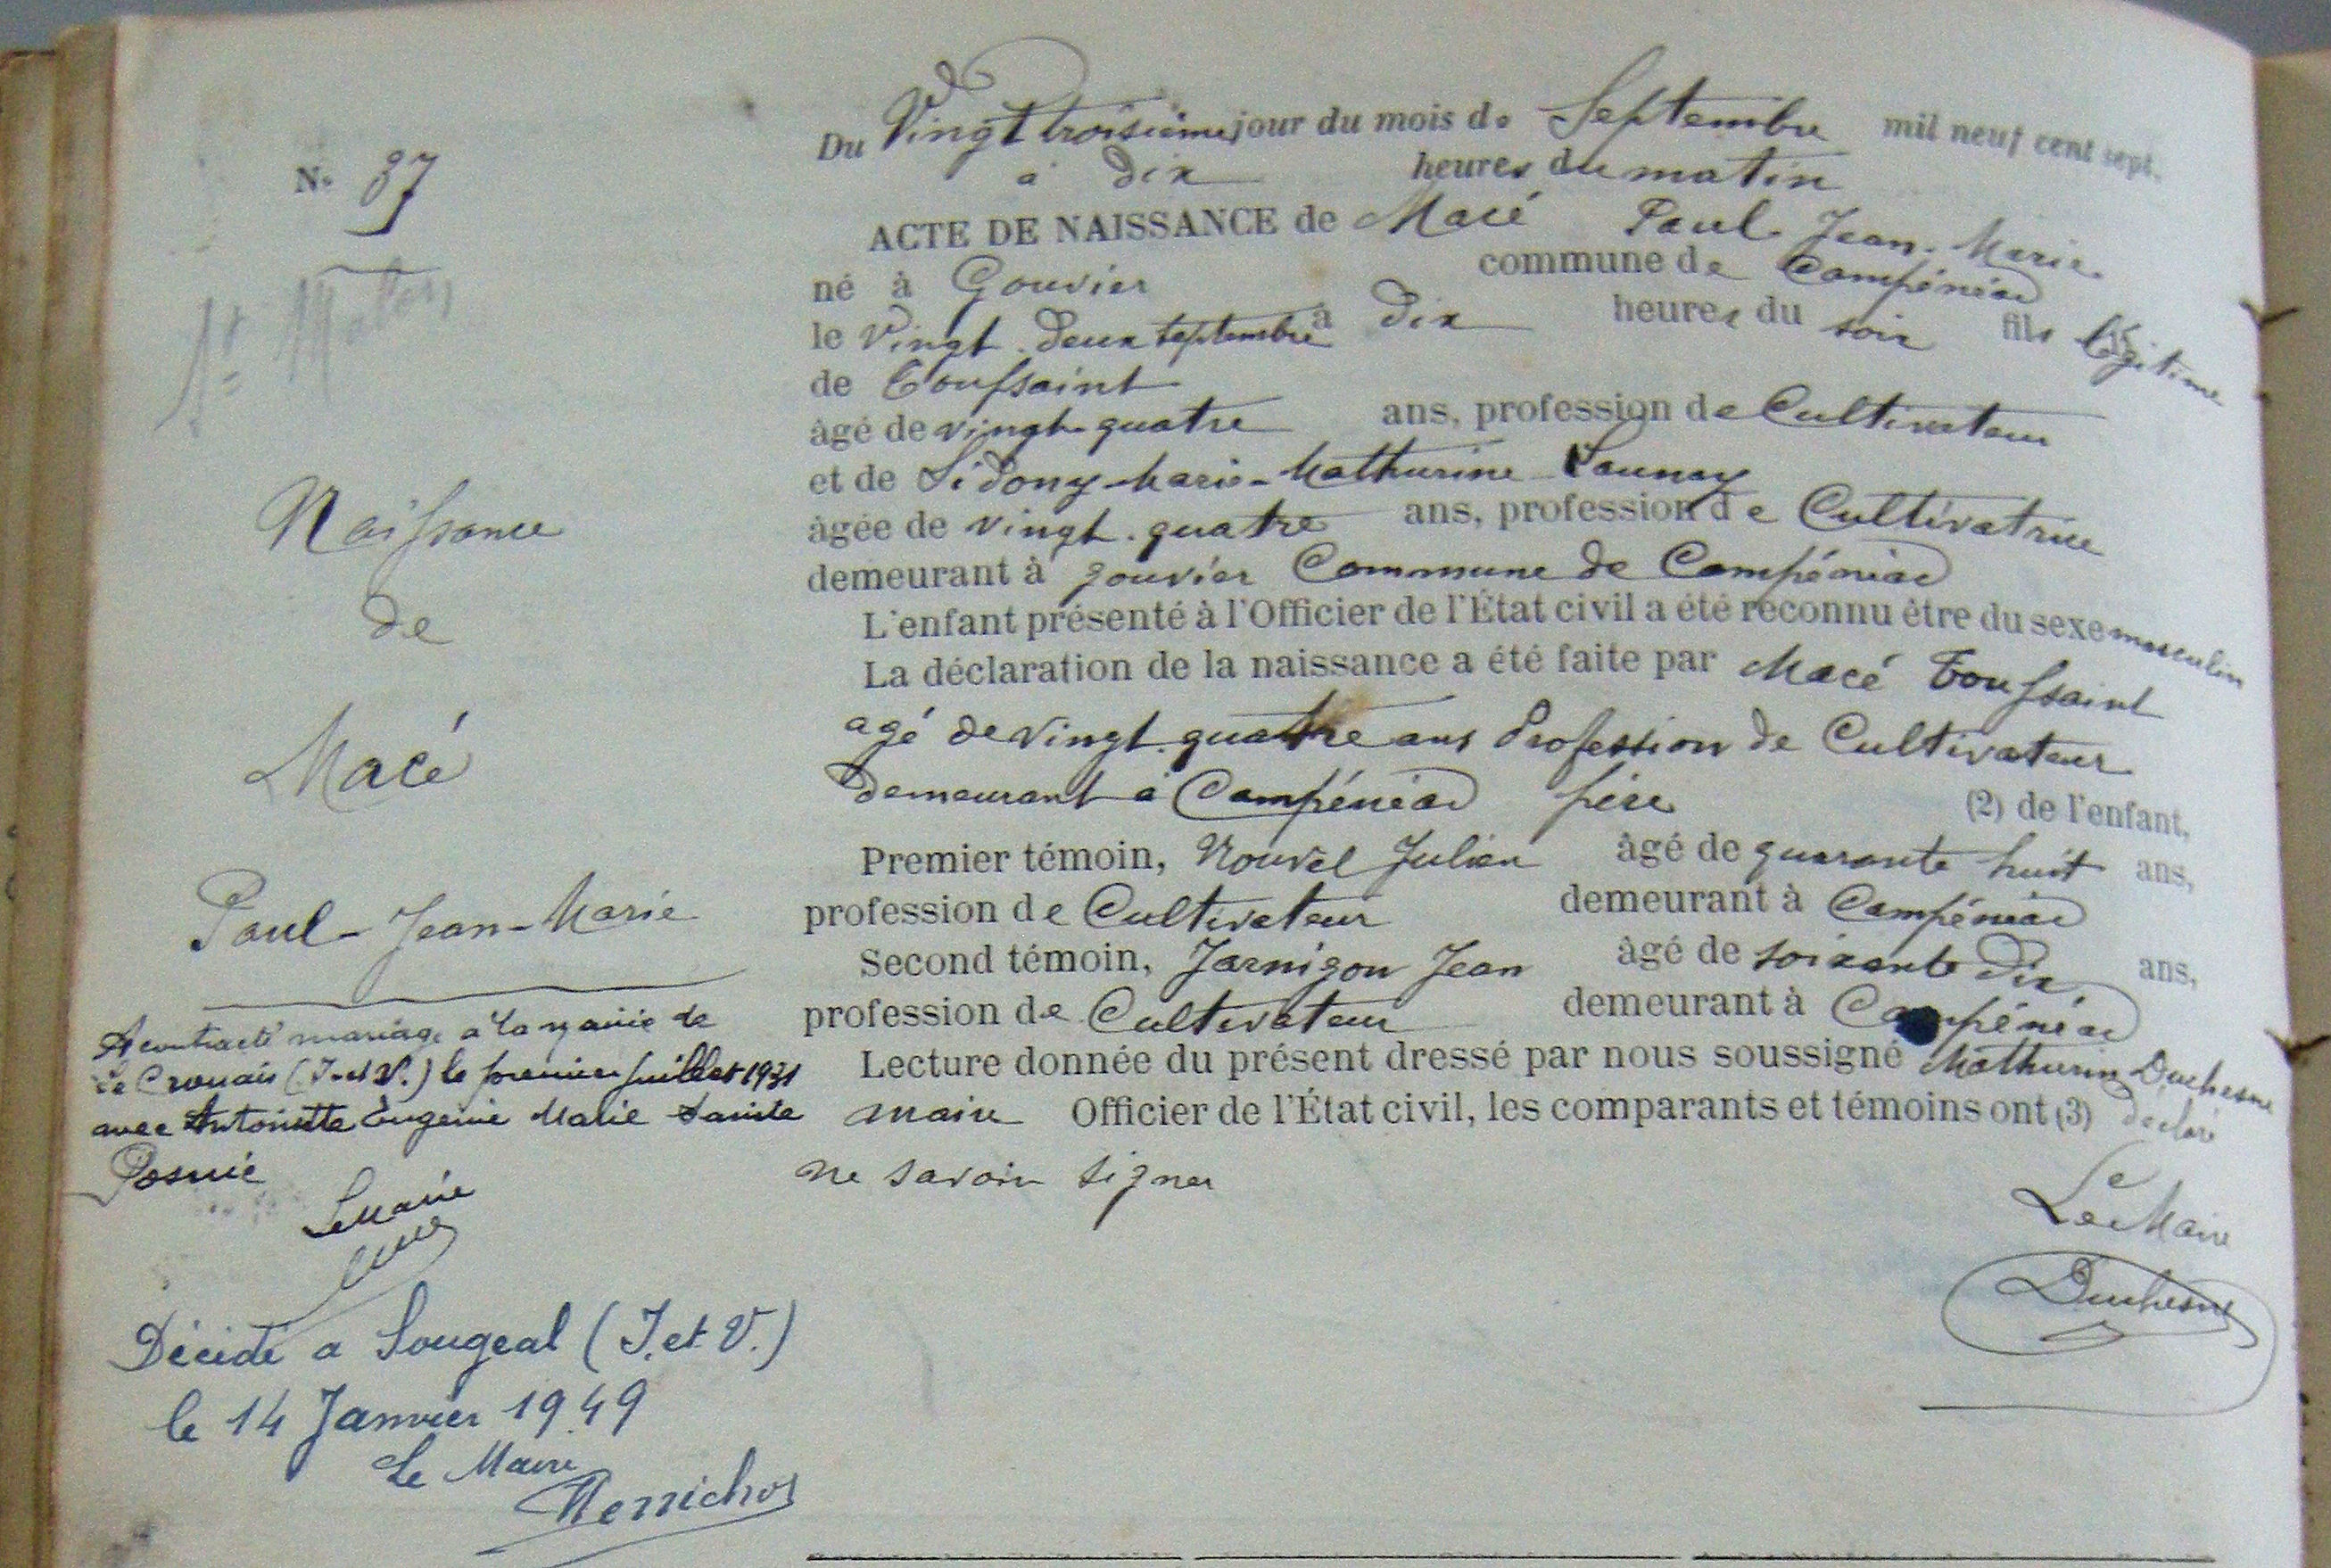 N° 37
Naissance
de
Macé
Paul-Jean-Marie
A contracté mariage à la mairie de
Le Crouais (I. et V.) le premier juillet 1931
avec Antoinette Eugénie Marie Sainte
Posnic
Le Maire
Décidé a Sougeal (I. et V.)
le 14 Janvier 1949
Le Maire
Du Vingt troisième jour du mois de Septembre mil neuf cent sept.
à dix heures du matin
ACTE DE NAISSANCE de Macé Paul Jean-Marie
né à Gouvier commune de Campénéac
le Vingt-deux septembre à dix heures du soir fils légitime
de Toussaint
âgé de vingt-quatre ans, profession de Cultivateur
et de Sidony-Marie-Mathurine Launay
âgée de vingt-quatre ans, profession de Cultivatrice
demeurant à gouvier Commune de Campénéac
L'enfant présenté à l'Officier de l'État civil a été reconnu être du sexe masculin
La déclaration de la naissance a été faite par Macé Toussaint
agé de vingt-quatre ans Profession de Cultivateur
demeurant à Campénéac père (2) de l'enfant,
Premier témoin, Nouvel Julien âgé de quarante huit ans,
profession de Cultivateur demeurant à Campénéac
Second témoin, Jarnigon Jean âgé de soixante Dix ans,
profession de Cultivateur demeurant à Campénéac
Lecture donnée du présent dressé par nous soussigné Mathurin Duchesne
maire Officier de l'État civil, les comparants et témoins ont (3) déclaré
ne savoir signer
Le Maire
Duchesne